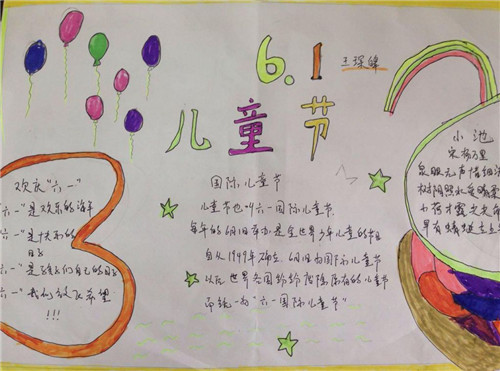 6.1
王琛峰
儿童节
欢庆“六一”
“六一”是欢乐的海洋
“六一”是快乐的
日子
六一”是孩子们自己的日子
六一”我们放飞希望
!!!
国际儿童节
儿童节也叫六一国际儿童节.
每年的6月1日在世界是全世界少年儿童的节日
自从1949年确立6月1日为国际儿童节
以后世界各国纷纷废除原有的儿童节
而统一为“六一国际儿童节”
小池
宋杨万里
泉眼无声惜细流
树阴照水爱晴柔
小荷才露尖尖角
早有蜻蜓立上头